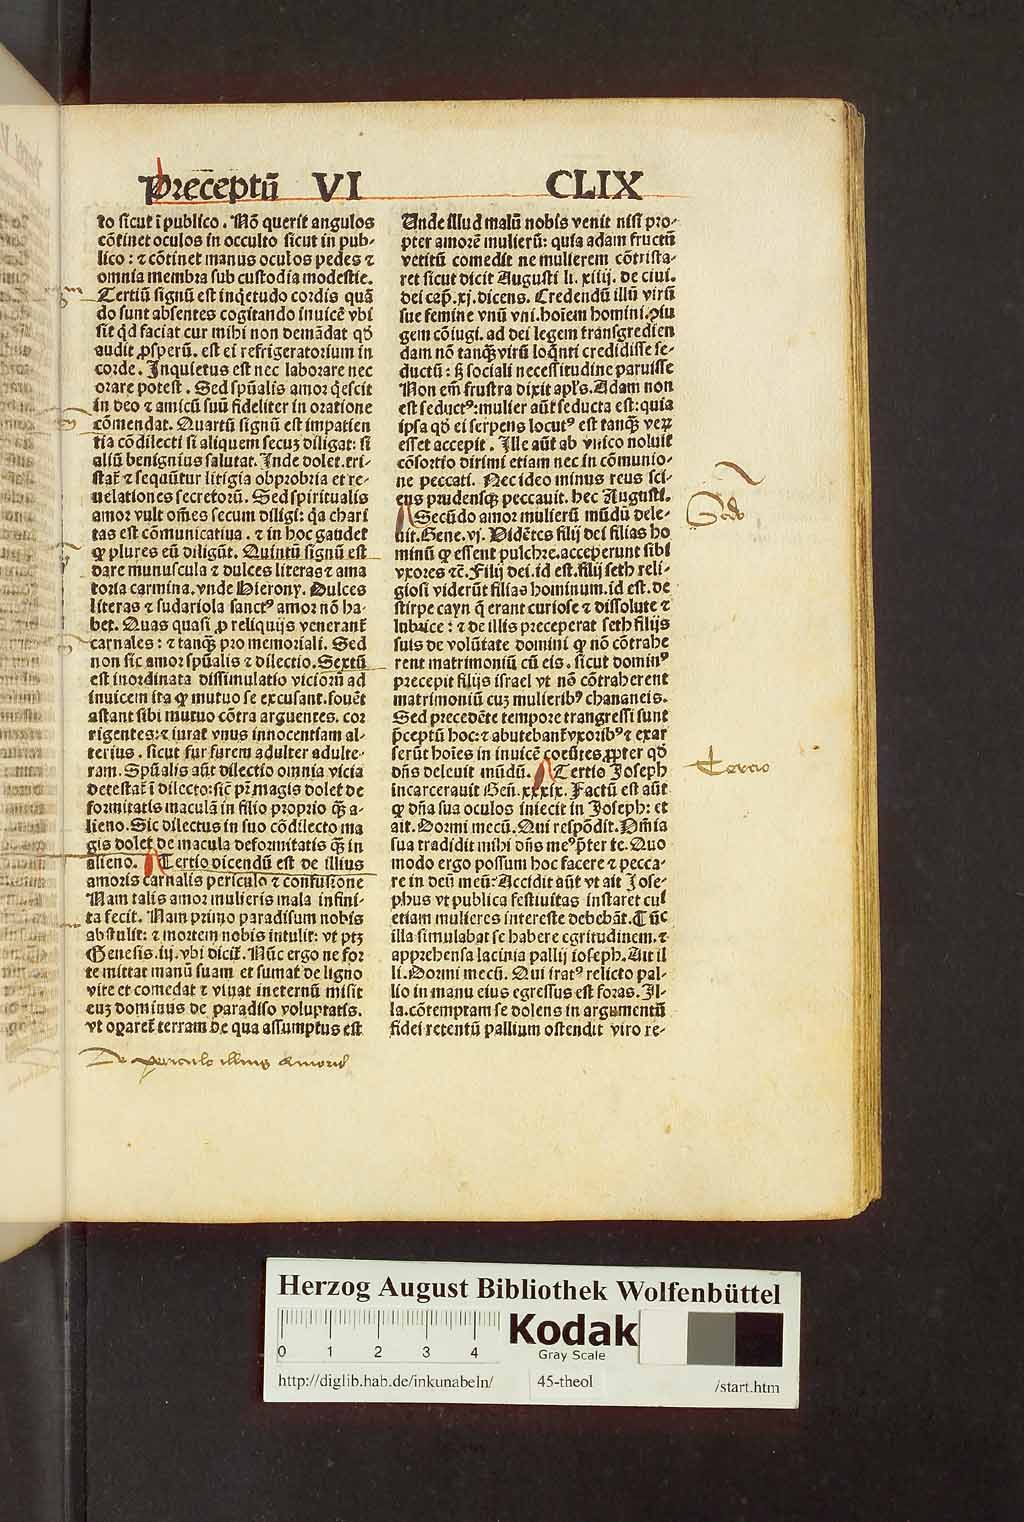 Preceptū VI CLIX
to sicut ī publico. Nō querit angulos
cōtinet oculos in occulto sicut in pub-
lico: ⁊ cōtinet manus oculos pedes ⁊
omnia membra sub custodia modestie.
Tertiū signū est inq̇etudo cordis quā
do sunt absentes cogitando inuicē vbi
sit qd faciat cur mihi non demādat qđ
audit ꝓsperū. est ei refrigeratorium in
corde. Inquietus est nec laborare nec
orare potest. Sed spūalis amor q̇escit
in deo ⁊ amicū suū fideliter in oratione
cōmendat. Quartū signū est impatien
tia cōdilecti si aliquem secuꝫ diligat: si
aliū benignius salutat. Inde dolet. tri-
stat̄ ⁊ sequūtur litigia obprobria et re-
uelationes secretorū. Sed spiritualis
amor vult om̄es secum diligi: q̇a chari
tas est cōmunicatiua. ⁊ in hoc gaudet
ꝙ plures eū diligūt. Quintū signū est
dare munuscula ⁊ dulces literas ⁊ ama
toria carmina. vnde Hierony. Dulces
literas ⁊ sudariola sanctꝰ amor nō ha-
bet. Quas quasi ꝓ reliquijs venerant̄
carnales: ⁊ tanqꝫ pro memoriali. Sed
non sic amor spūalis ⁊ dilectio. Sextū
est inordinata dissimulatio viciorū ad
inuicem ita ꝙ mutuo se excusant. fouēt
astant sibi mutuo cōtra arguentes. cor
rigentes: ⁊ iurat vnus innocentiam al-
terius. sicut fur furem adulter adulte-
ram. Spūalis aūt dilectio omnia vicia
detestat̄ ī dilecto: sic̄ pr̄ magis dolet de
formitatis maculā in filio proprio qꝫ a-
lieno. Sic dilectus in suo cōdilecto ma
gis dolet de macula deformitatis qꝫ in
alieno. Tertio dicendū est de illius
amoris carnalis periculo ⁊ confusione
Nam talis amor mulieris mala infini-
ta fecit. Nam primo paradisum nobis
abstulit: ⁊ mortem nobis intulit: vt ptꝫ
Genesis. iij. vbi dicit̄. Nūc ergo ne for
te mittat manū suam et sumat de ligno
vite et comedat ⁊ viuat ineternū misit
euꝫ dominus de paradiso voluptatis.
vt oꝑaret̄ terram de qua assumptus est
De periculo illius amoris
Unde illud malū nobis venit nisi pro-
pter amorē mulierū: quia adam fructū
vetitū comedit ne mulierem cōtrista-
ret sicut dicit Augusti li. xiiij. de ciui.
dei cap̄. xj. dicens. Credendū illū virū
sue femine vnū vni. hoiem homini. ꝯiu
gem cōiugi. ad dei legem transgredien
dam nō tanqꝫ virū loq̄nti credidisse se-
ductū: sꝫ sociali necessitudine paruisse
Non em̄ frustra dixit apl's. Adam non
est seductꝰ: mulier aūt seducta est: quia
ipsa qđ ei serpens locutꝰ est tanqꝫ veꝝ
esset accepit. Ille aūt ab vnico noluit
cōsortio dirimi etiam nec in cōmunio-
ne peccati. Nec ideo minus reus sci-
ens prudensqꝫ peccauit. hec Augusti.
Secūdo amor mulierū mūdū dele-
uit. Gene. vj. Vidētes filij dei filias ho
minū ꝙ essent pulchre. acceperunt sibi
vxores ⁊c̄. Filij dei. id est. filij seth reli-
giosi viderūt filias hominum. id est. de
stirpe cayn q̄ erant curiose ⁊ dissolute ⁊
lubrice: ⁊ de illis preceperat seth filijs
suis de volūtate domini ꝙ nō cōtrahe
rent matrimoniū cū eis. sicut dominꝰ
precepit filijs israel vt nō cōtraherent
matrimoniū cuꝫ mulieribꝰ chananeis.
Sed precedēte tempore trangressi sunt
p̄ceptū hoc: ⁊ abutebant̄ vxoribꝰ ⁊ exar
serūt hoīes in inuicē coeūtes ꝓpter qđ
dn̄s deleuit mūdū. Tertio Joseph
incarcerauit Gen̄. xxxix. Factū est aūt
ꝙ dn̄a sua oculos iniecit in Joseph: et
ait. Dormi mecū. Qui respōdit. Om̄ia
sua tradidit mihi dn̄s meꝰ p̄ter te. Quo
modo ergo possum hoc facere ⁊ pecca-
re in deū meū? Accidit aūt vt ait Jose-
phus vt publica festiuitas instaret cui
etiam mulieres interesse debebāt. Tūc
illa simulabat se habere egritudinem. ⁊
apprehensa lacinia pallij ioseph. Ait il
li. Dormi mecū. Qui iratꝰ relicto pal-
lio in manu eius egressus est foras. Il-
la. cōtemptam se dolens in argumentū
fidei retentū pallium ostendit viro re-
Secdo
Tercio
Herzog August Bibliothek Wolfenbüttel
0 1 2 3 4
Kodak
Gray Scale
http://diglib.hab.de/inkunabeln/ 45-theol /start.htm